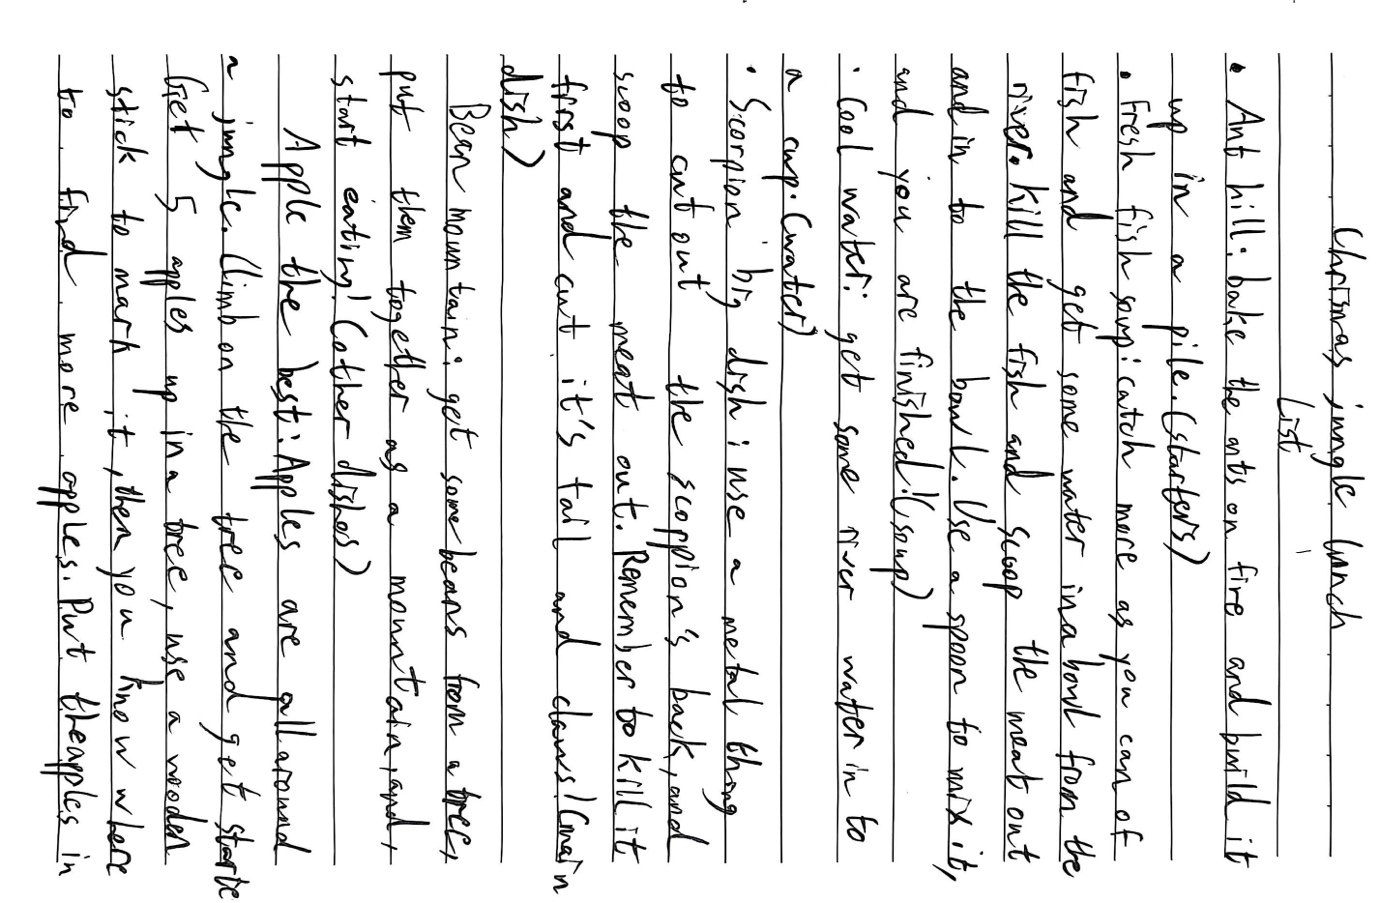 Chrismas jungle lunch
List
• Ant hill: bake the ants on fire and build it
up in a pile. (starters)
• Fresh fish soup: catch more as you can of
fish and get some water in a bowl from the
river. Kill the fish and scoop the meat out
and in to the bowl. Use a spoon to mix it,
and you are finished! (soup)
• Cool water: get some river water in to
a cup. (water)
• Scorpion big dish: use a metal thing
to cut out the scorpion's back, and
scoop the meat out. Remember to kill it
first and cut it's tail and claws! (main
dish)
Bean mountain: get some beans from a tree,
put them together as a mountain, and,
start eating! (other dishes)
Apple the best: Apples are all around
a jungle. Climb on the tree and get starte
Get 5 apples up in a tree, use a wooden
stick to mark it, then you know where
to find more apples. Put the apples in